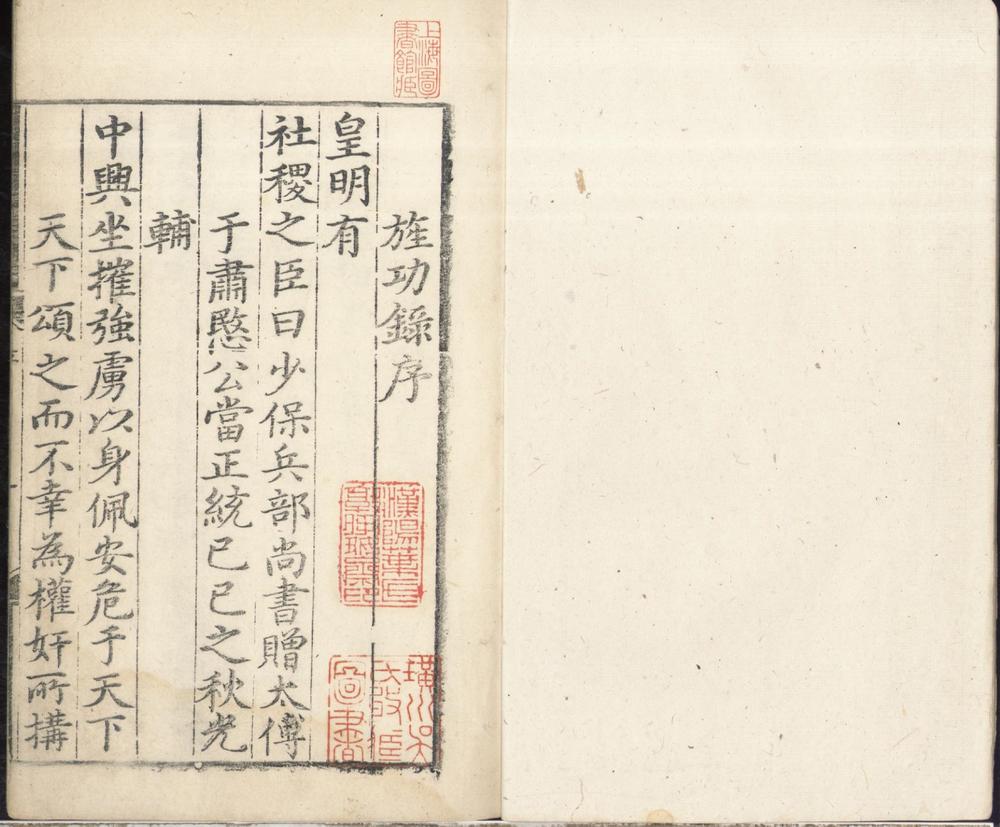 旌功錄序
皇明有
社稷之臣曰少保兵部尚書贈太傅
于肅愍公當正統己巳之秋光
輔
中興坐摧強虜以身佩安危于天下
天下頌之而不幸為權奸所搆
上海圖
書館藏
漢陽葉氏
璜川吳
氏收藏
圖書